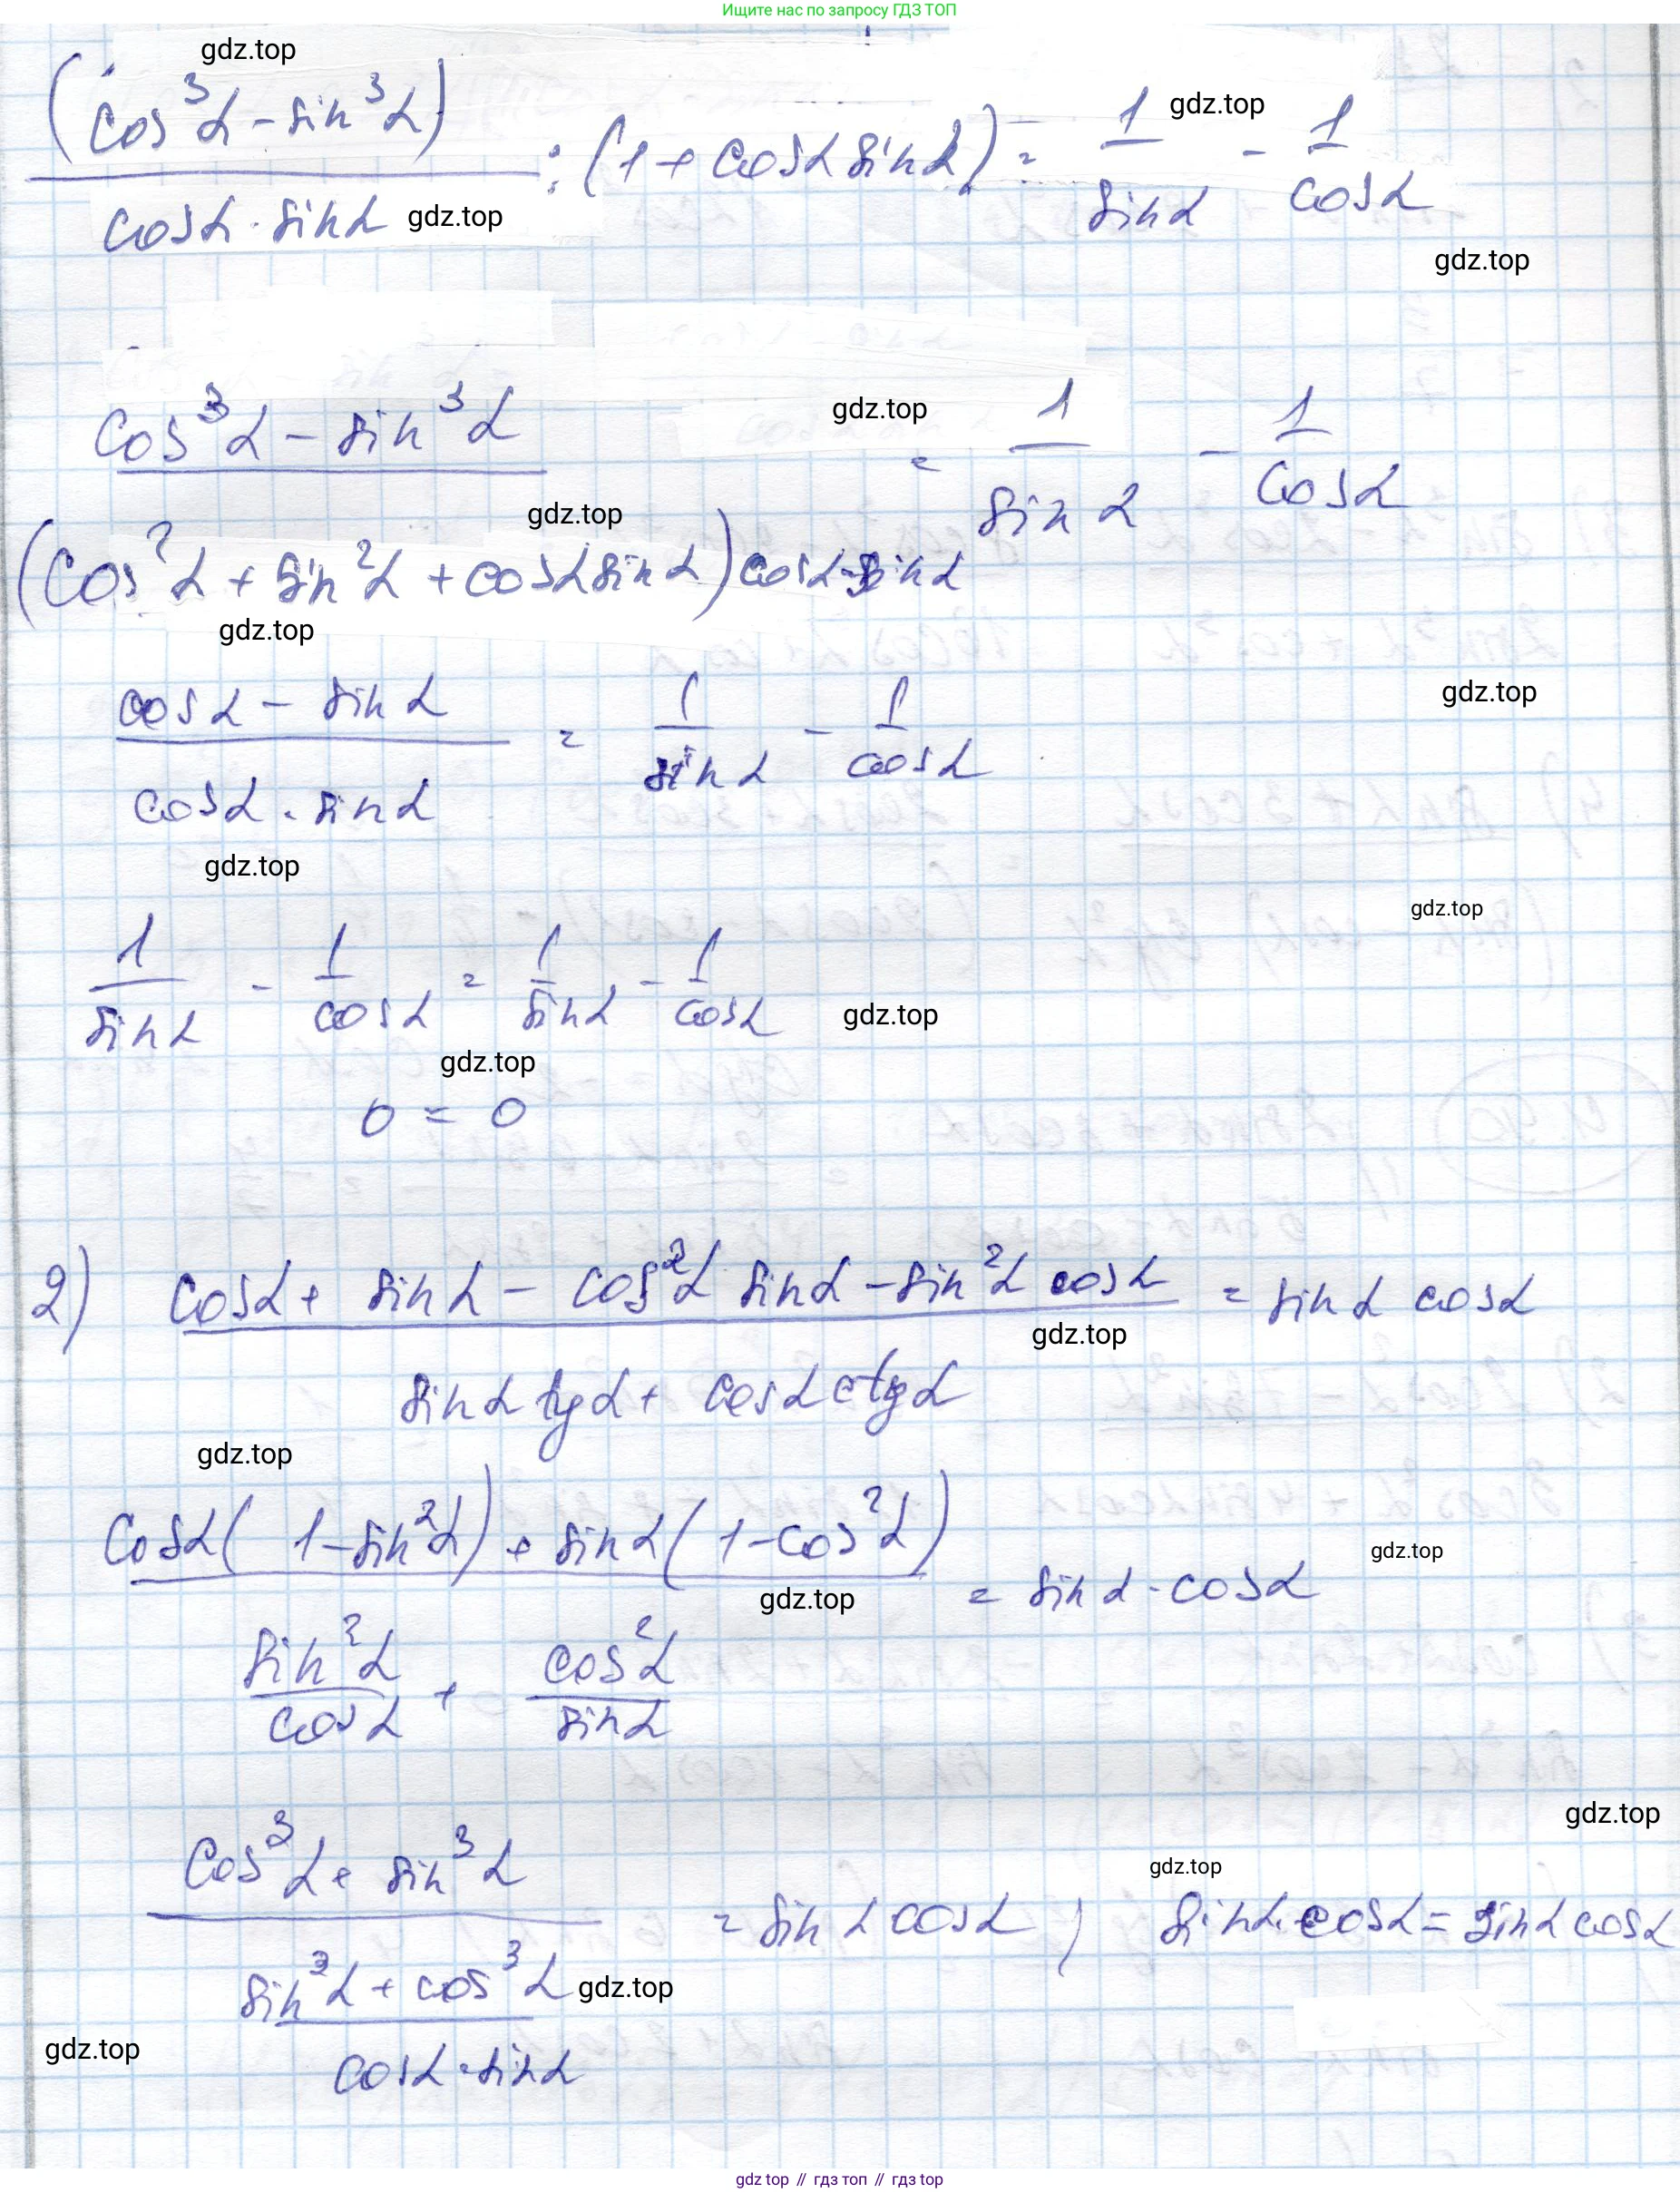 Ищите нас по запросу ГДЗ ТОП
gdz.top
(cos³α - sin³α) / (cosα · sinα) : (1 + cosα sinα) = 1/sinα - 1/cosα
gdz.top
gdz.top
gdz.top
(cos³α - sin³α) / ((cos²α + sin²α + cosα sinα) cosα·sinα) = 1/sinα - 1/cosα
gdz.top
gdz.top
gdz.top
(cosα - sinα) / (cosα · sinα) = 1/sinα - 1/cosα
gdz.top
gdz.top
gdz.top
1/sinα - 1/cosα = 1/sinα - 1/cosα
gdz.top
gdz.top
0 = 0
2) (cosα + sinα - cos²α sinα - sin²α cosα) / (sinα tgα + cosα ctgα) = sinα cosα
gdz.top
gdz.top
(cosα(1 - sin²α) + sinα(1 - cos²α)) / (sin²α/cosα + cos²α/sinα) = sinα · cosα
gdz.top
gdz.top
gdz.top
gdz.top
(cos³α + sin³α) / ((sin³α + cos³α) / (cosα · sinα)) = sinα cosα ) sinα·cosα = sinα cosα
gdz.top
gdz.top
gdz top // гдз топ // гдз top